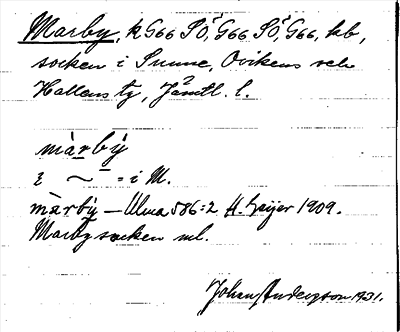 Marby, k G66 SÖ, G66 SÖ, G66, kb,
socken i Sunne, Ovikens och
Hallens tg, Jämtl. l.
màrby̆
i ~ = i M.
màrby̆ – Ulma 586:2 H. Geijer 1909.
Marby socken ml.
Johan Anderson 1931.